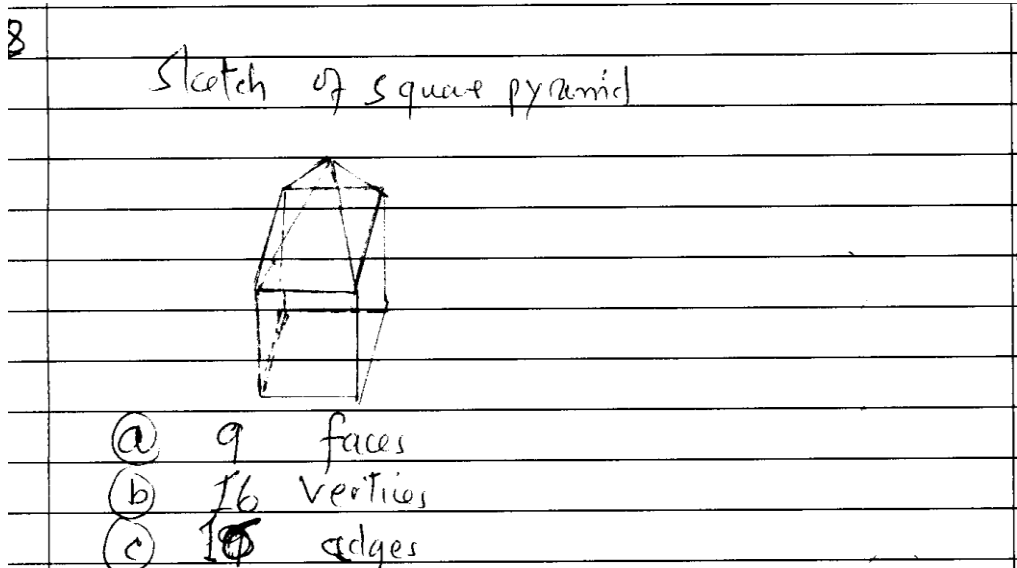 8
Sketch of square pyramid
(a) 9 faces
(b) 16 vertices
(c) edges